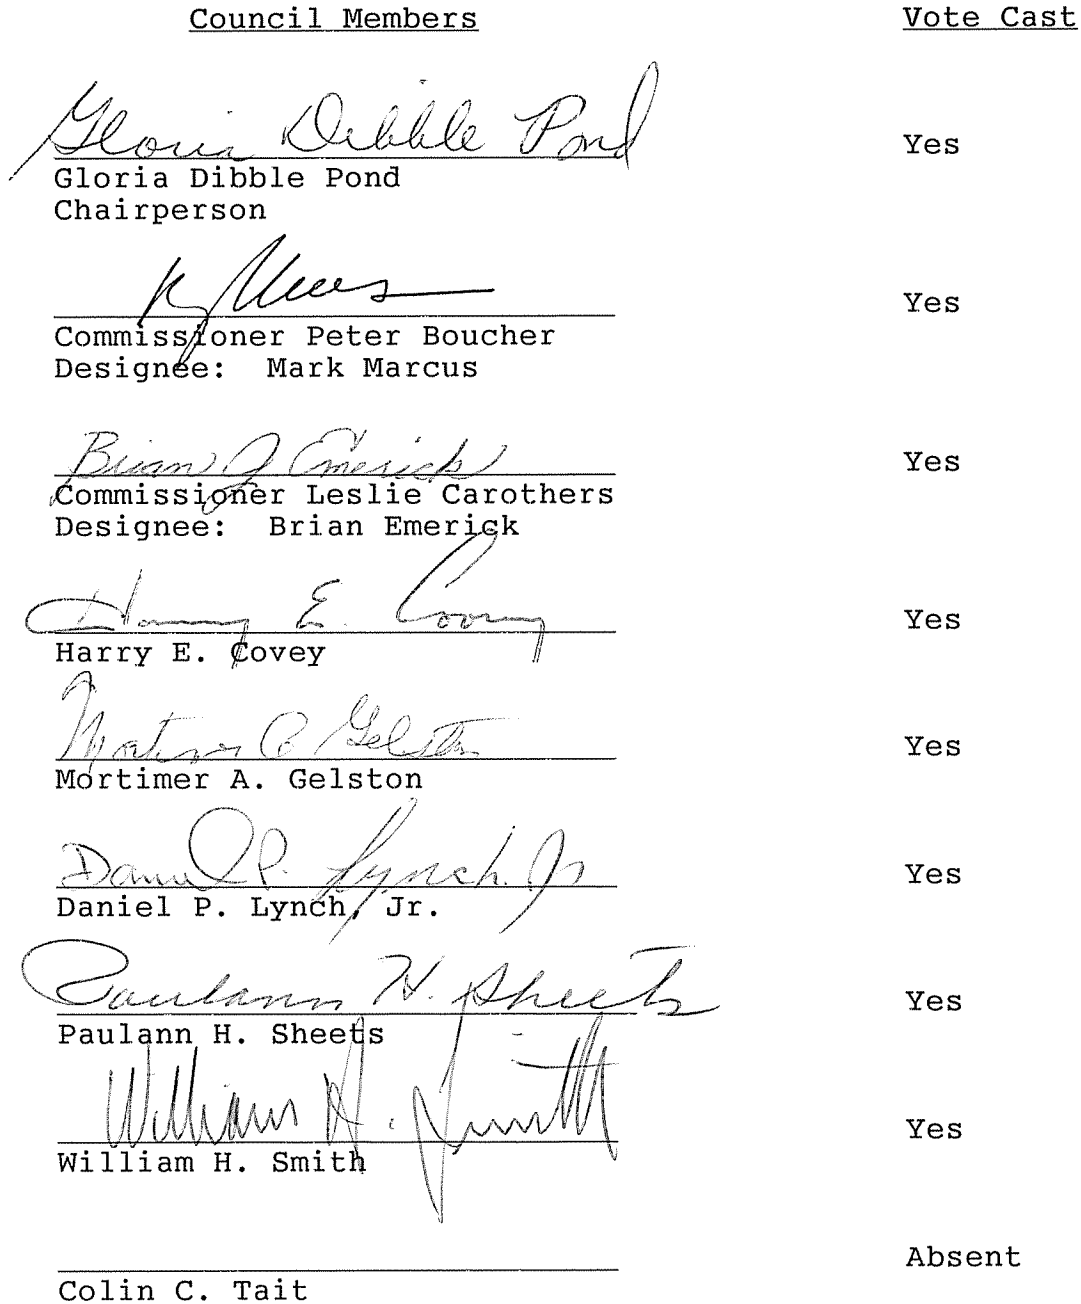 Council Members Vote Cast
Gloria Dibble Pond Yes
Gloria Dibble Pond
Chairperson
Yes
Commissioner Peter Boucher
Designee: Mark Marcus
Brian J Emerick Yes
Commissioner Leslie Carothers
Designee: Brian Emerick
Harry E. Covey Yes
Harry E. Covey
Mortimer A Gelston Yes
Mortimer A. Gelston
Daniel P. Lynch, Jr Yes
Daniel P. Lynch, Jr.
Paulann H. Sheets Yes
Paulann H. Sheets
William H. Smith Yes
William H. Smith
Absent
Colin C. Tait